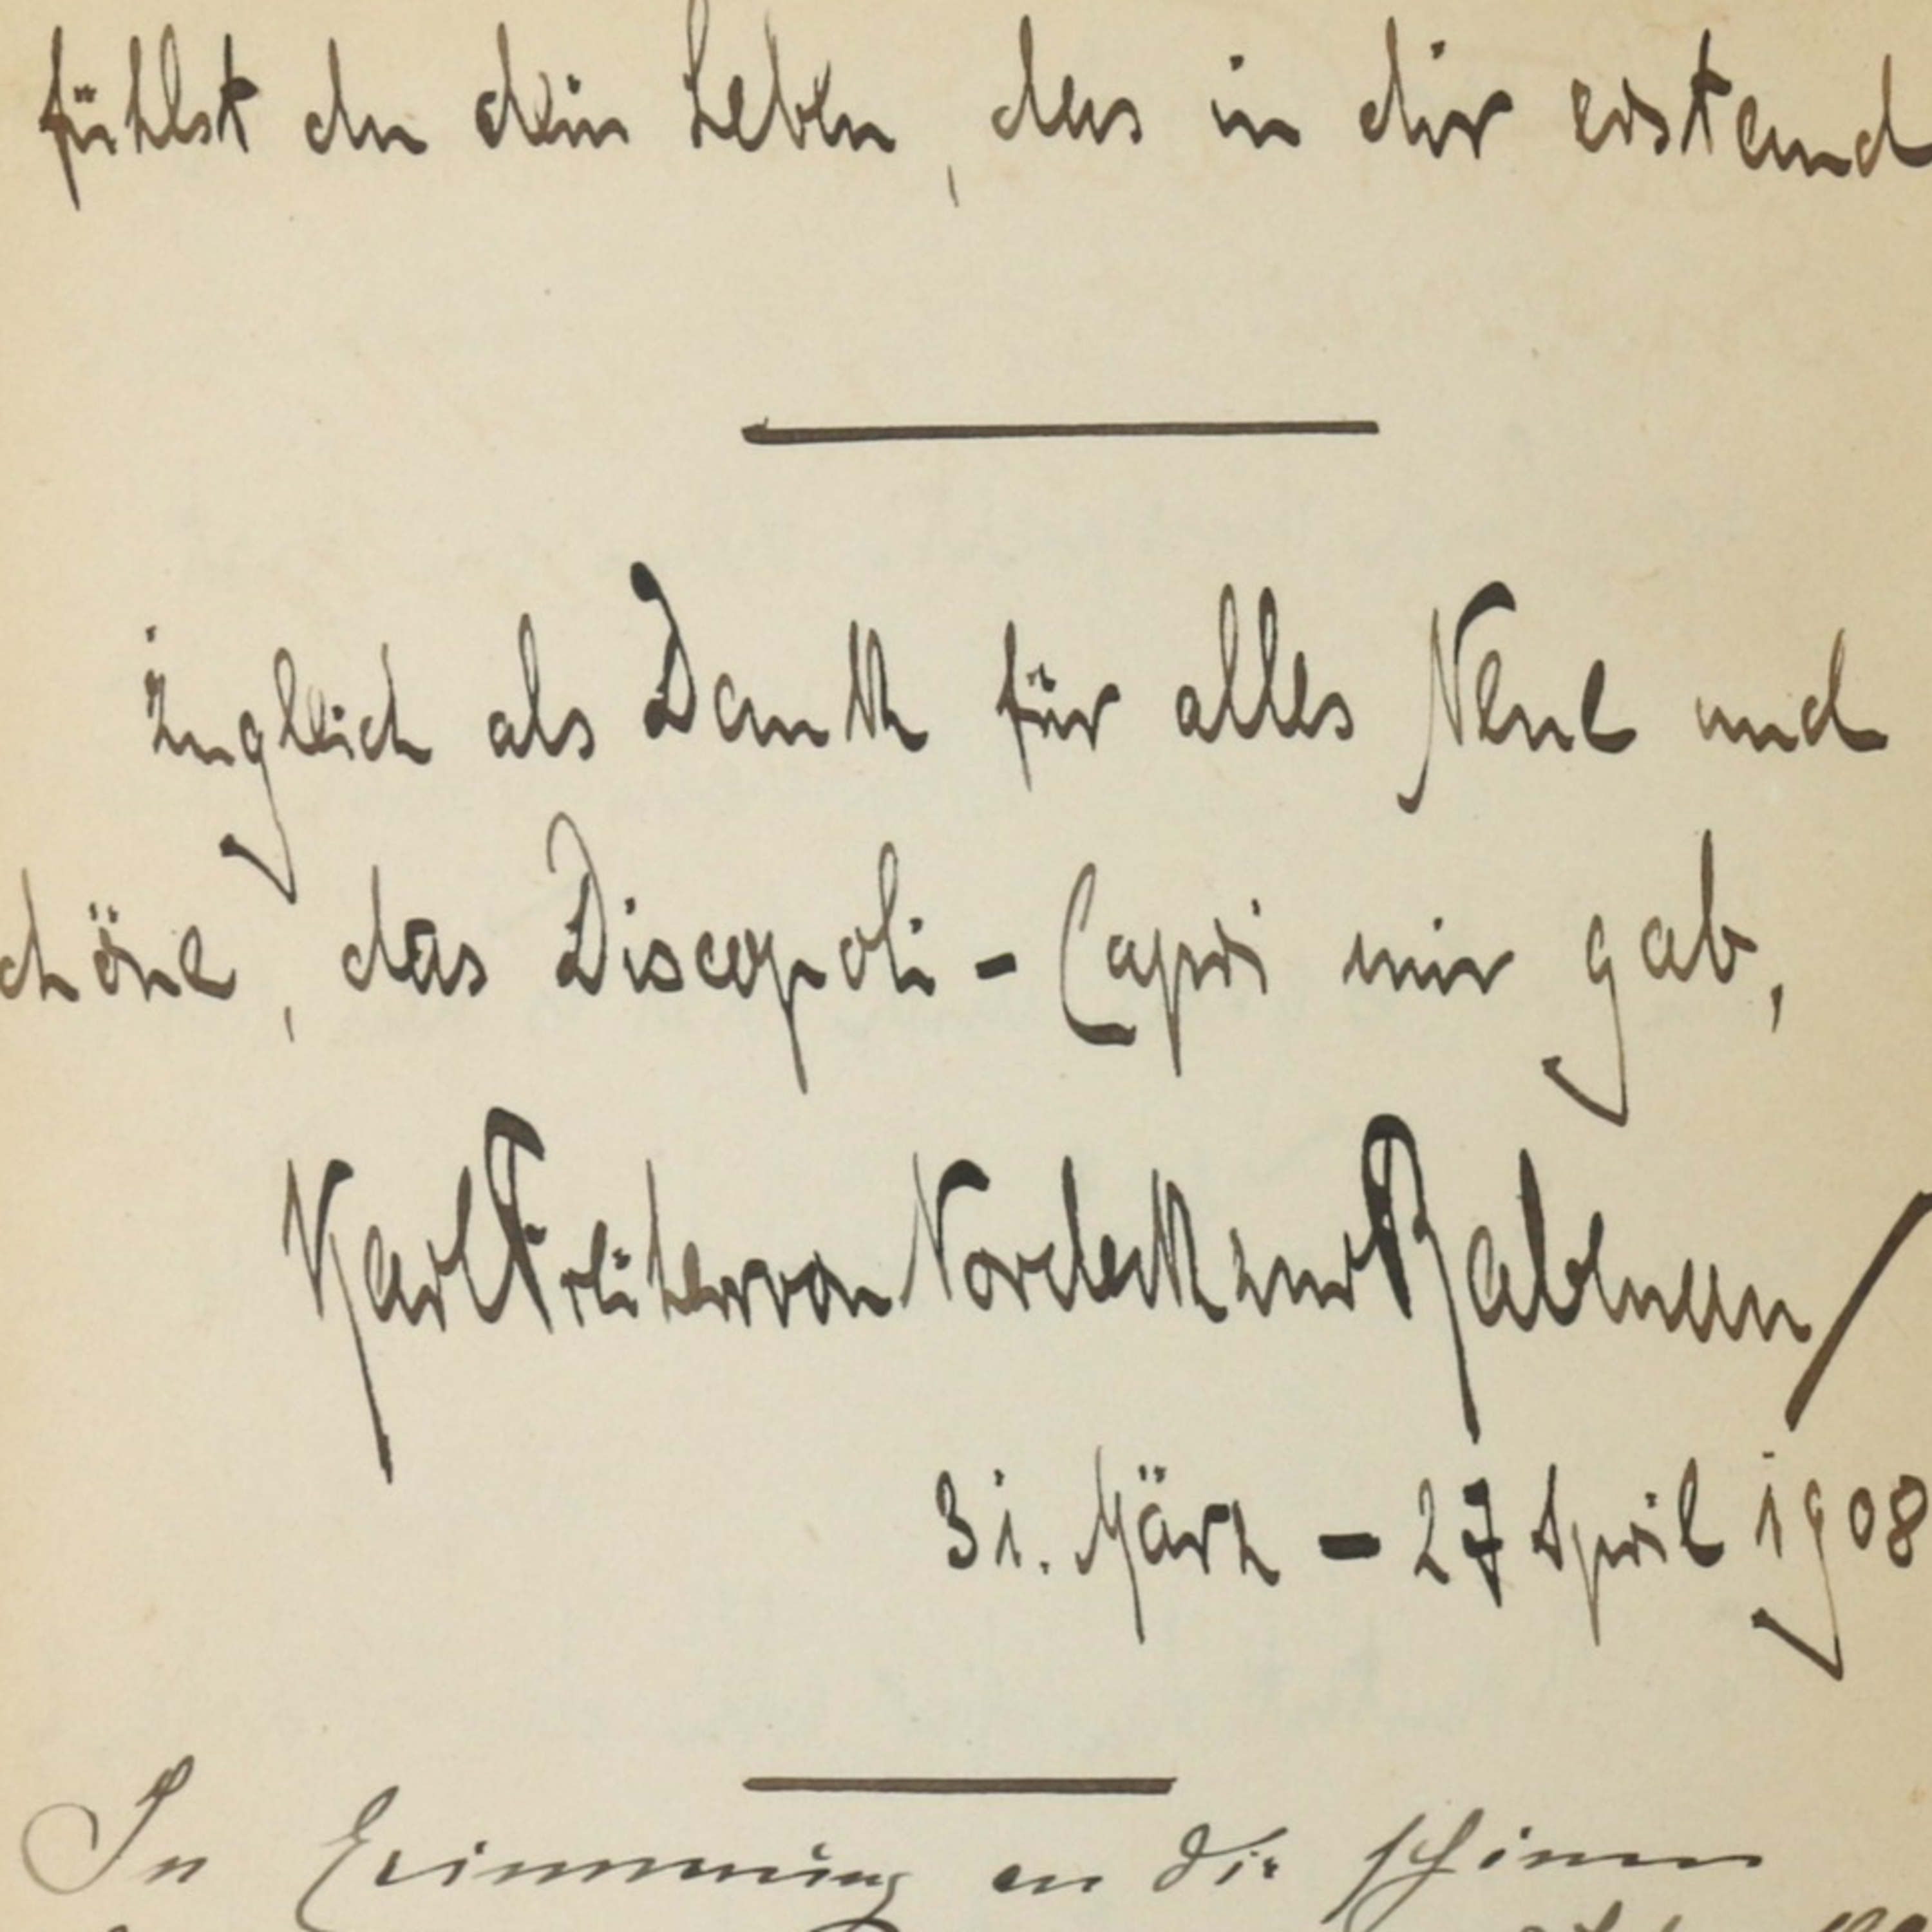 fühlst du dein Leben, das in dir erstand
zugleich als Dank für alles Neue und
chöne, das Discopoli - Capri mir gab,
Karl Freiherr von Nordeck zur Rabenau
31. März - 27 April 1908
In Erinnerung an die schönen